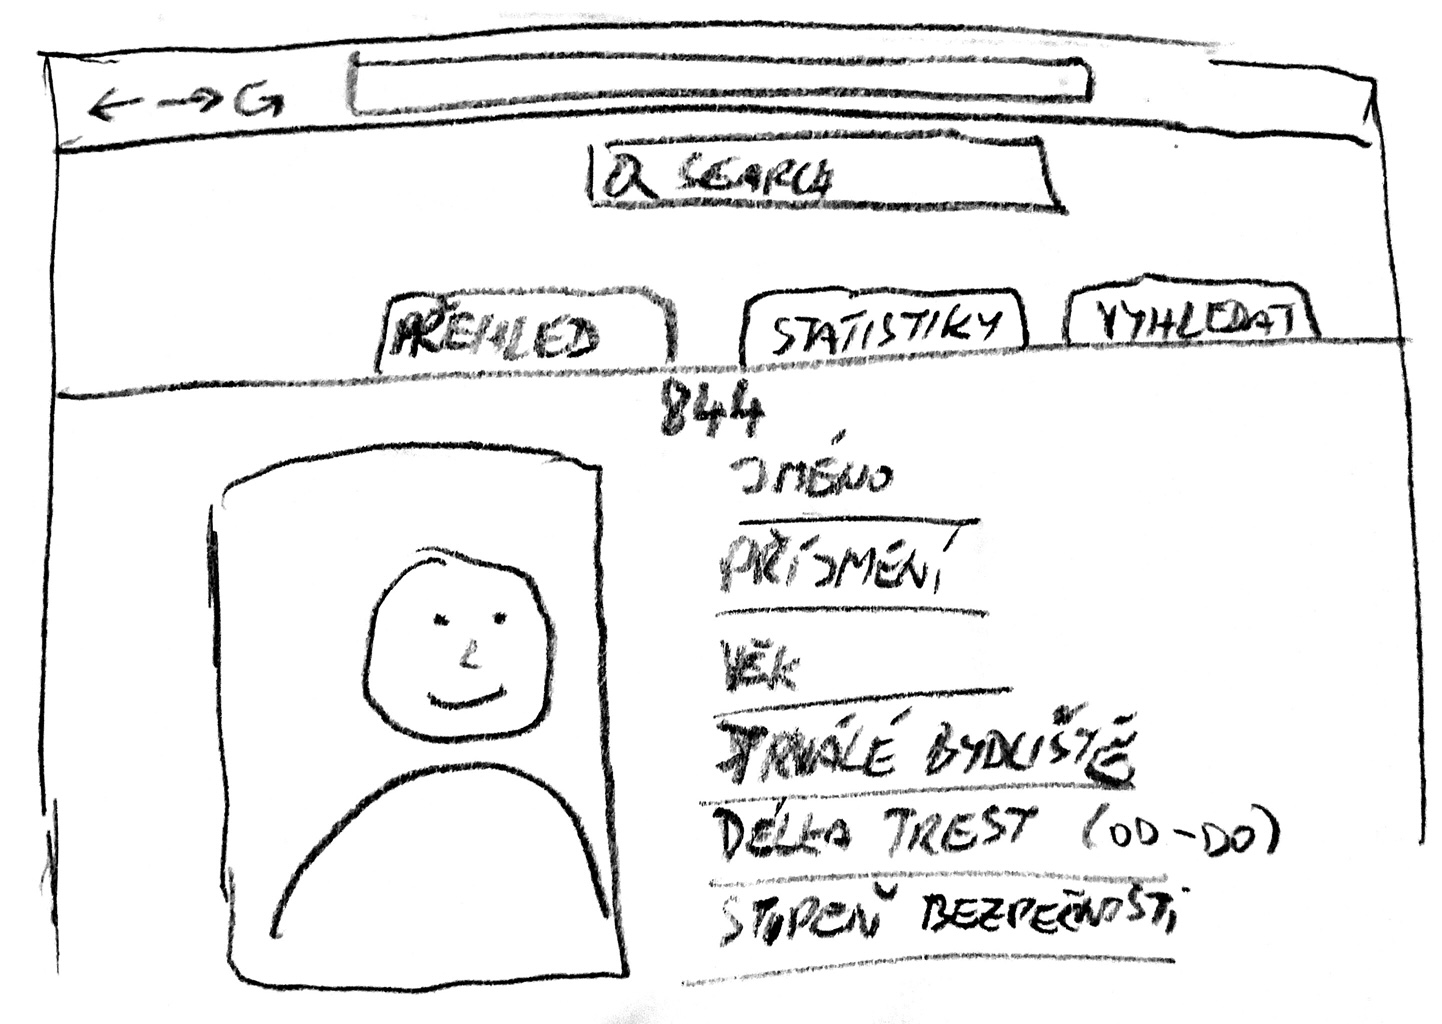 SEARCH
PŘEHLED STATISTIKY VYHLEDAT
844
JMÉNO
PŘÍJMENÍ
VĚK
TRVALÉ BYDLIŠTĚ
DÉLKA TREST (OD-DO)
STUPEŇ BEZPEČNOSTI